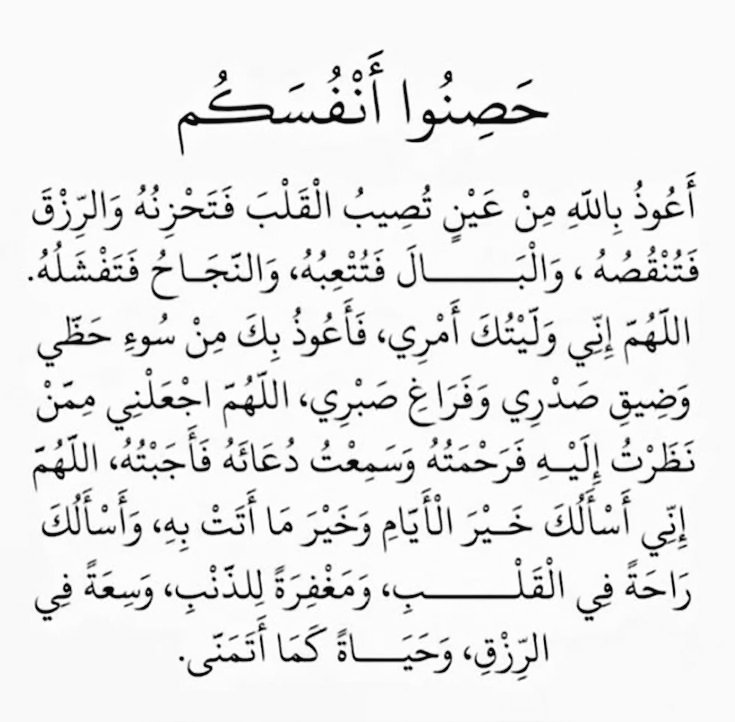 حَصِنُوا أَنْفُسَكُم
أَعُوذُ بِاللّهِ مِنْ عَيْنٍ تُصِيبُ الْقَلْبَ فَتَحْزِنُهُ وَالرِّزْقَ
فَتُنْقُصُهُ ، وَالْبَـــــــالَ فَتُتْعِبُهُ، وَالنَّجَـاحُ فَتَفْشَلُهُ.
اللَّهُمّ إِنِّي وَلَّيْتُكَ أَمْرِي، فَأَعُوذُ بِكَ مِنْ سُوءِ حَظّي
وَضِيقِ صَدْرِي وَفَرَاغِ صَبْرِي، اللَّهُمّ اجْعَلْنِي مِمّنْ
نَظَرْتُ إِلَيْـهِ فَرَحْمَتُهُ وَسَمِعْتُ دُعَائَهُ فَأَجَبْتُهُ، اللَّهُمّ
إِنِّي أَسْأَلُكَ خَـيْرَ الْأَيّامِ وَخَيْرَ مَا أَتَتْ بِهِ، وَأَسْأَلُكَ
رَاحَةً فِي الْقَلْـــــــبِ، وَمَغْفِرَةً لِلذّنْبِ، وَسِعَةً فِي
الرِّزْقِ، وَحَيَـــاةً كَمَا أَتَمَنّى.